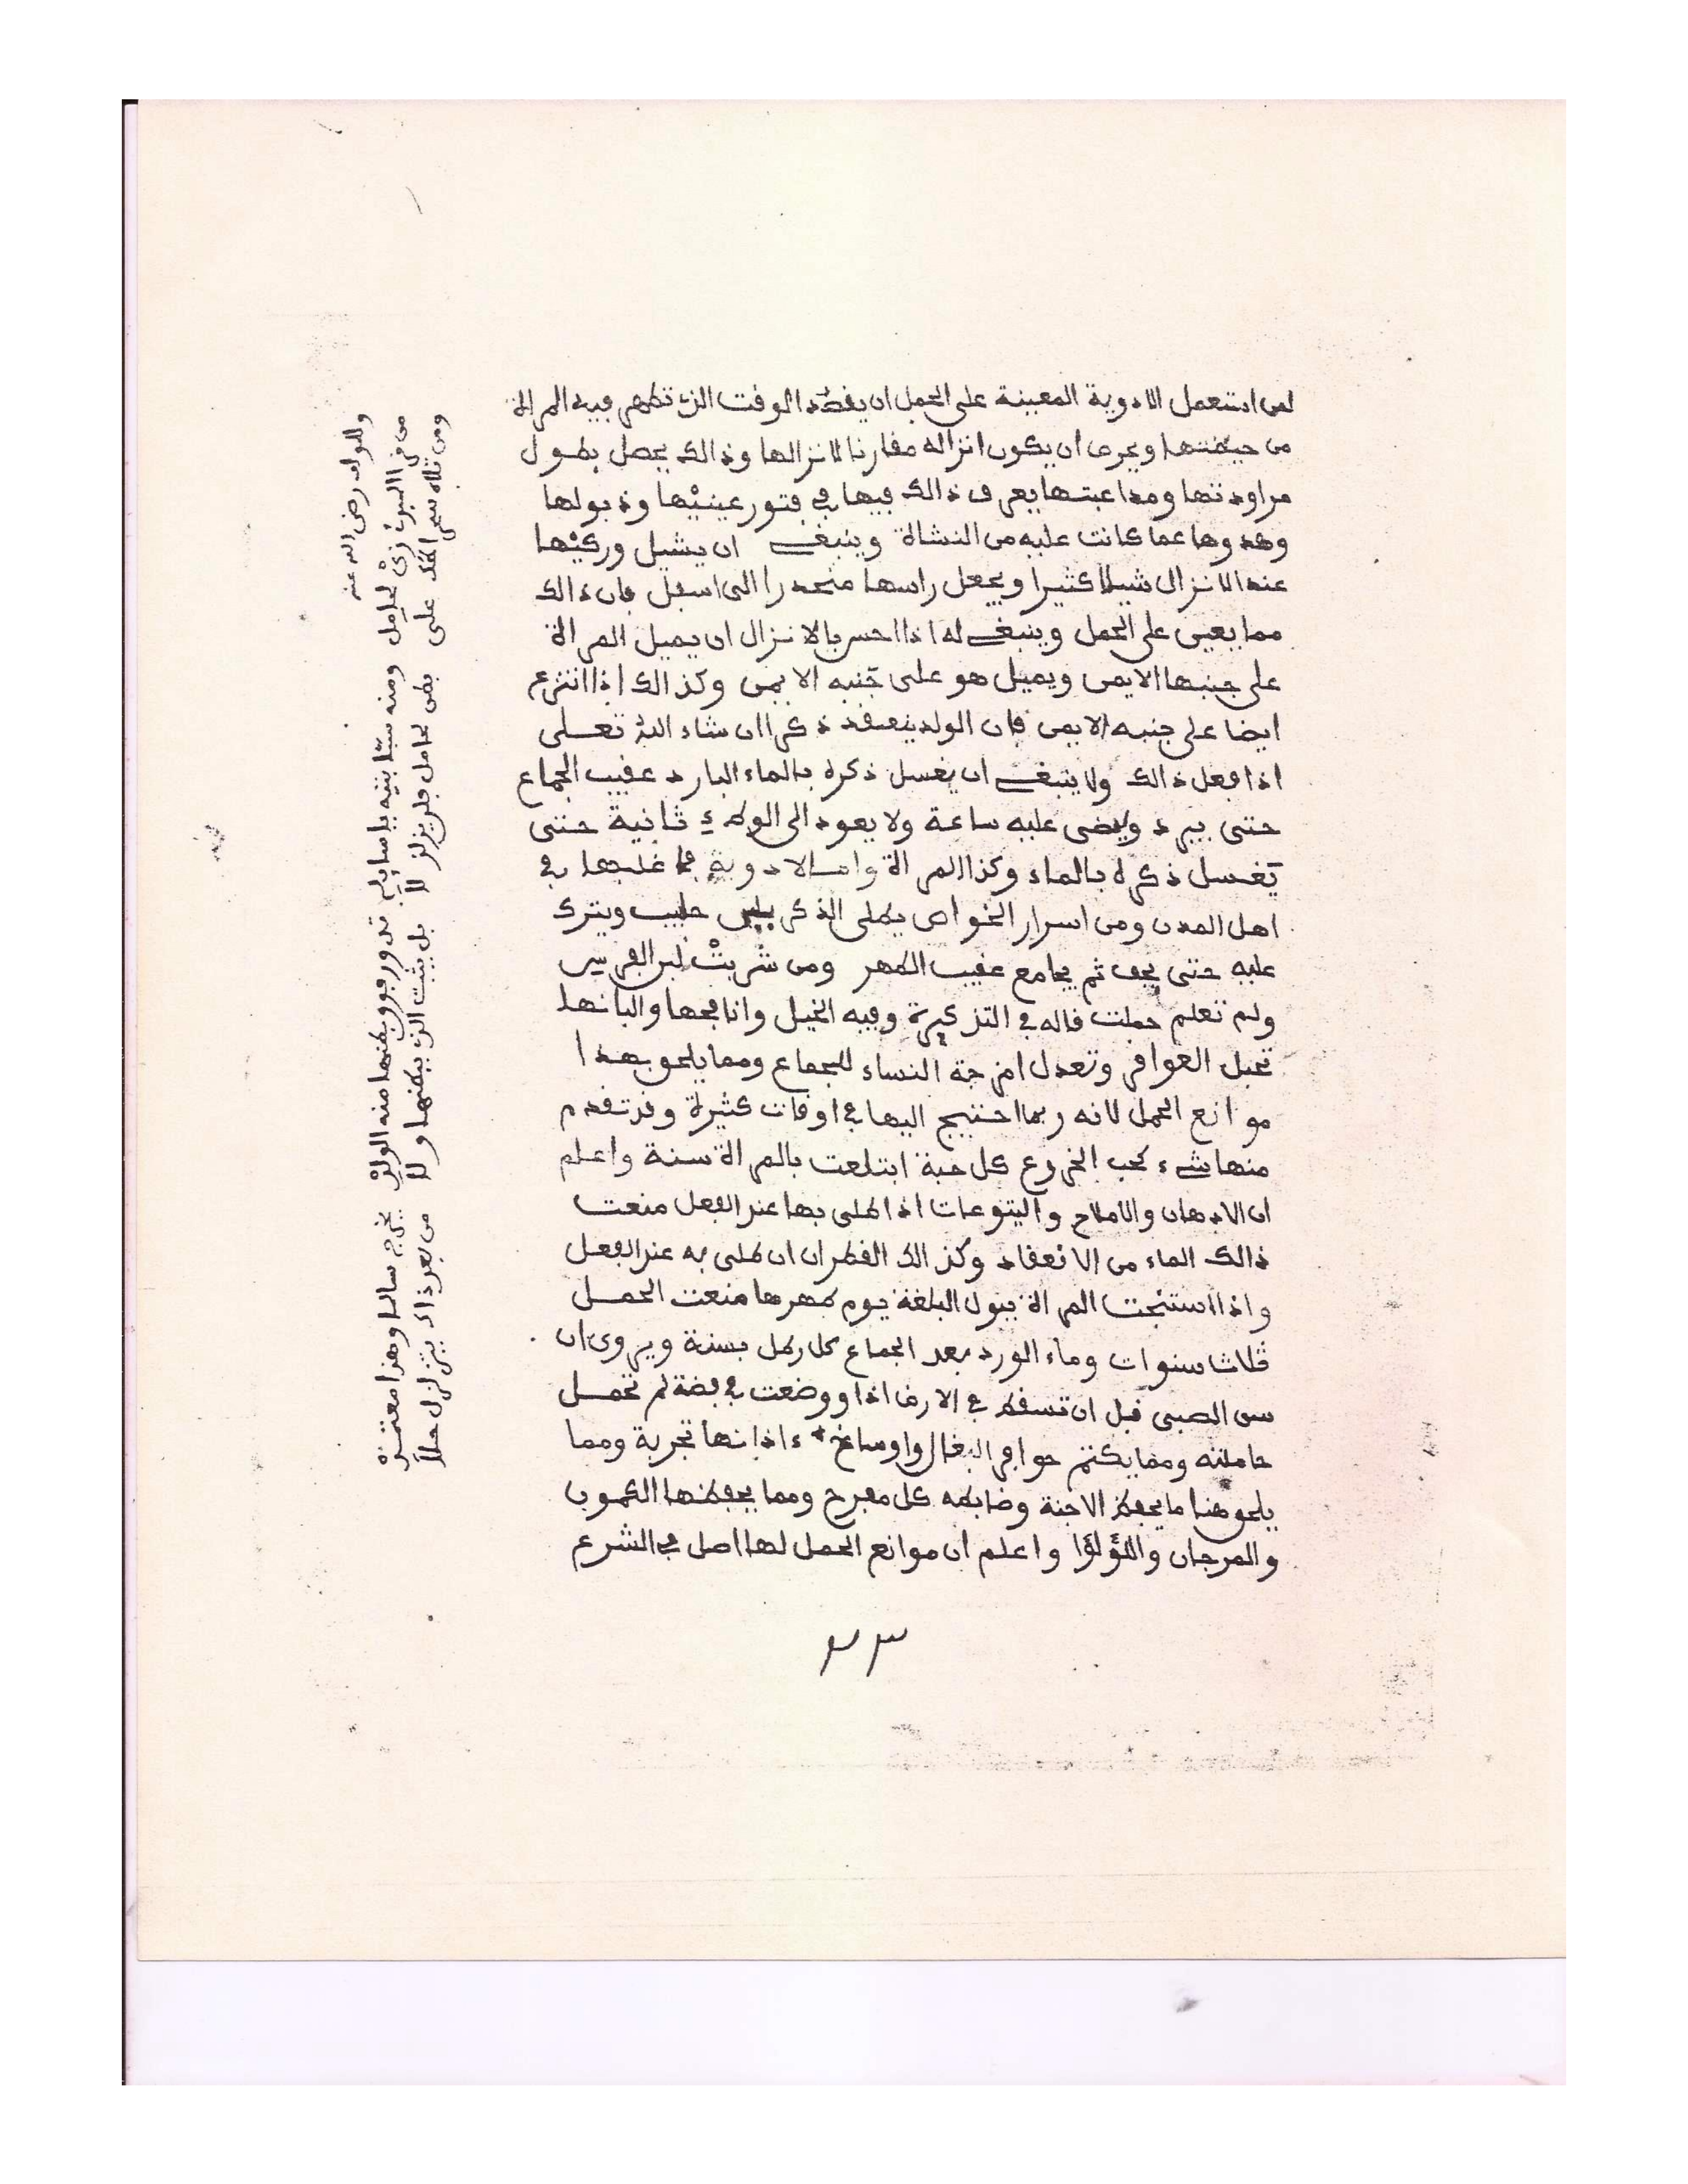 لمن استعمل الادوية المعينة على الحمل ان يقصد الوقت الذى تطهر فيه المراة
من حيضتها ويحرص ان يكون انزاله مقارنا لانزالها وذالك يحصل بطول
مراودتها ومداعبتها يعرف ذالك فيها في فتور عينيْها وذبولها
وهدوها عما كانت عليه من النشاة وينبغى ان يشيل وركيْها
عند الانزال شيلا كثيرا ويجعل راسها منحدرا الى اسفل فان ذالك
مما يعين على الحمل وينبغى له اذا احس بالانزال ان يميل المراة
على جنبها الايمن ويميل هو على جنبه الايمن وكذالك اذا انتزع
ايضا على جنبه الايمن فان الولد ينعقد ذكرا ان شاء الله تعلى
اذا فعل ذالك ولا ينبغى ان يغسل ذكره بالماء البارد عقيب الجماع
حتى يبرد ويمضى عليه ساعة ولا يعود الى الوطء ثانية حتى
يغسل ذكره بالماء وكذا المراة واما الادوية فما غلبها في
اهل المدن ومن اسرار الخواص يطلى الذكر بلبن حليب ويترك
عليه حتى يجف ثم يجامع عقيب الطهر ومن شربتْ لبن الفرس
ولم تعلم حملت قاله في التذكرة وفيه الخيل وانافحها والبانها
تحبل العواقر وتعدل امزجة النساء للجماع ومما يلحق بهذا
موانع الحمل لانه ربما احتيج اليها في اوقات كثيرة وقد تقدم
منها شىء كحب الخروع كل حبة ابتلعت بالمراة سنة واعلم
ان الادهان والاملاح واليتوعات اذا طلى بها عند الفعل منعت
ذالك الماء من الانعقاد وكذالك القطران ان طلى به عند الفعل
واذا استنجت المراة ببول البلغة يوم طهرها منعت الحمل
ثلاث سنوات وماء الورد بعد الجماع كل رطل بسنة ويروى ان
سن الصبى قبل ان تسقط في الارض اذا ووضعت في فضة لم تحمل
حاملته ومما يكتم حوافر البغال واوساخ ءاذانها تجربة ومما
يلحق هنا ما يحفظ الاجنة وضابطه كل مفرح ومما يحفظها الكمون
والمرجان واللؤلؤا واعلم ان موانع الحمل لها اصل في الشرع
٣٣
وللوالد رضى الله عنه
من في لحامل ومنه ستا بنيه تدور فوق بطنها منه الولدْ يخرج سالما وهذا معتمدْ
ومن ثلاه على بطن لحامل فلن يزلزلا بل يثبت الذى ببطنها ولا من بعد ذاك